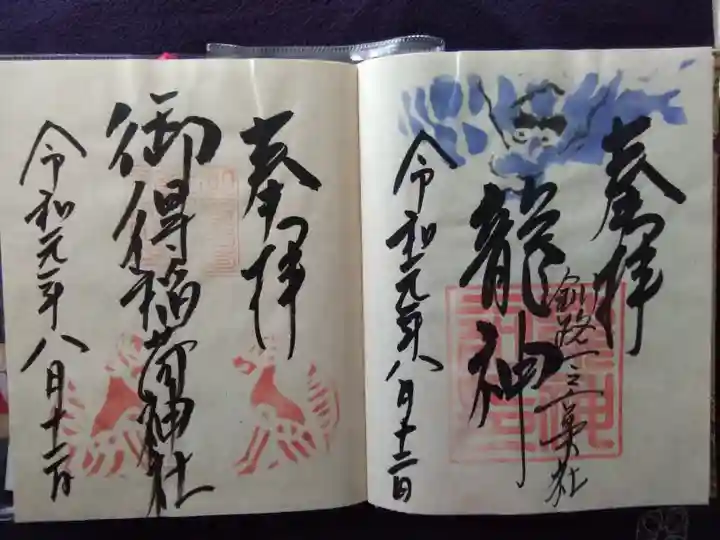 奉拝
龍神
釧路一之宮
令和元年八月十二日
奉拝
御得稲荷神社
令和元年八月十二日